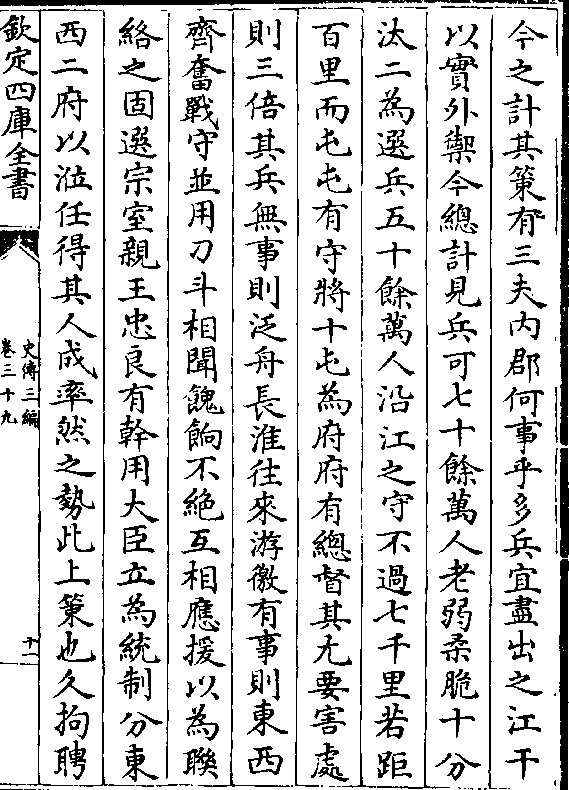 今之計其策有三夫内郡何事乎多兵宜盡出之江干
以實外禦今總計見兵可七十餘萬人老弱柔脆十分
汰二為選兵五十餘萬人沿江之守不過七千里若距
百里而屯屯有守將十屯為府府有總督其尤要害處
則三倍其兵無事則泛舟長淮往來游徼有事則東西
齊奮戰守並用刀斗相聞餽餉不絶互相應援以為聨
絡之固選宗室親王忠良有幹用大臣立為統制分東
西二府以涖任得其人成率然之勢此上策也久拘聘
欽定四庫全書
史傳三編
卷三十九
十一